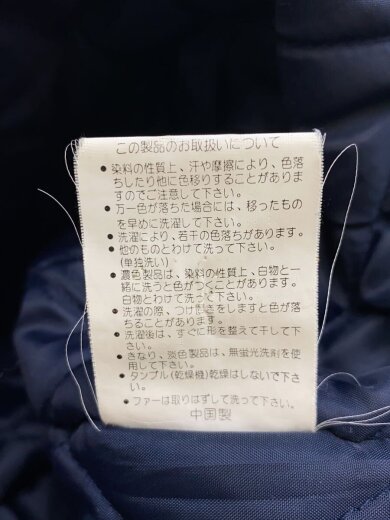 この製品のお取扱いについて
● 染料の性質上、汗や摩擦により、色落
ちしたり他に色移りすることがありま
すのでご注意して下さい。
● 万一色が落ちた場合には、移ったもの
を早めに洗濯して下さい。
● 洗濯により、若干の色落ちがあります。
● 他のものとわけて洗って下さい。
(単独洗い)
● 濃色製品は、染料の性質上、白物と一
緒に洗うと色がつくことがあります。
白物とわけて洗って下さい。
● 洗濯の際、つけおきをしますと色が落
ちることがあります。
● 洗濯後は、すぐに形を整えて干して下
さい。
● きなり、淡色製品は、無蛍光洗剤を使
用して下さい。
● タンブル(乾燥機)乾燥はしないで下さ
い。
● ファーは取りはずして洗って下さい。
中国製